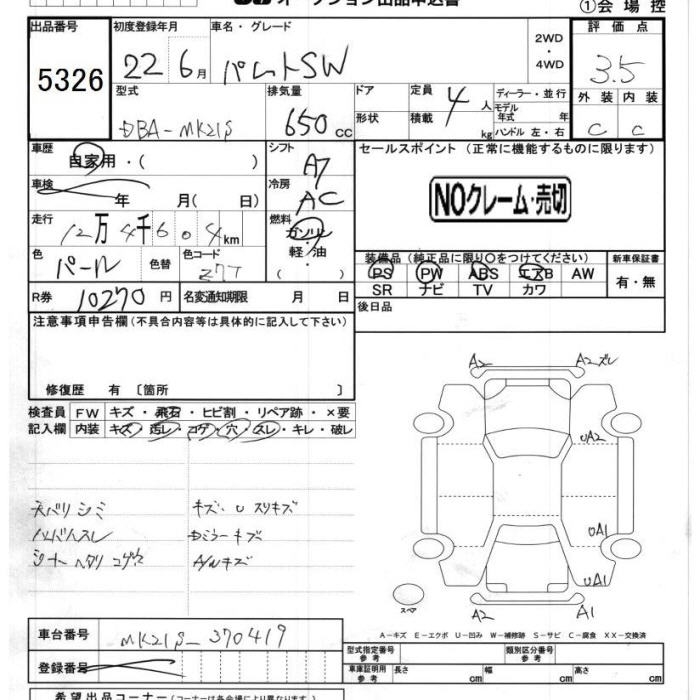 オークション出品申込書
①会場控
出品番号 初度登録年月 車名・グレード 評価点
5326 22 6月 パレットSW 2WD・4WD 3.5
型式 排気量 ドア 定員 4人 ディーラー・並行 外装 内装
DBA-MK21S 650cc 形状 積載 kg モデル年式 年 ハンドル 左・右 C C
車歴 自家用・( ) シフト A7 セールスポイント (正常に機能するものに限ります)
車検 年 月( 日) 冷房 AC NOクレーム・売切
走行 12万4千604km 燃料 ガソリン
色 パール 色替 色コード Z7T 軽・油 ( )
装備品(純正品に限り○をつけてください) 新車保証書
PS PW ABS エアB AW 有・無
SR ナビ TV カワ
R券 10270円 名変通知期限 月 日 後日品
注意事項申告欄(不具合内容等は具体的に記入して下さい)
修復歴 有 〔箇所 〕
検査員 FW キズ・飛石・ヒビ割・リペア跡・×要
記入欄 内装 キズ・汚レ・コゲ・穴・スレ・キレ・破レ
A2 A2ズレ
UA2
天バリシミ キズ・Uスリキズ
ハンドルスレ ドミラーキズ UA1
シートヘタリコゲ穴 A/Wキズ
UA1
スペア A2 A1
A-キズ E-エクボ U-凹み W-補修跡 S-サビ C-腐食 XX-交換済
車台番号 MK21S-370419
型式指定番号 参考 類別区分番号 参考
登録番号 車庫証明用 参考 長さ cm 幅 cm 高さ cm
希望出品コーナー